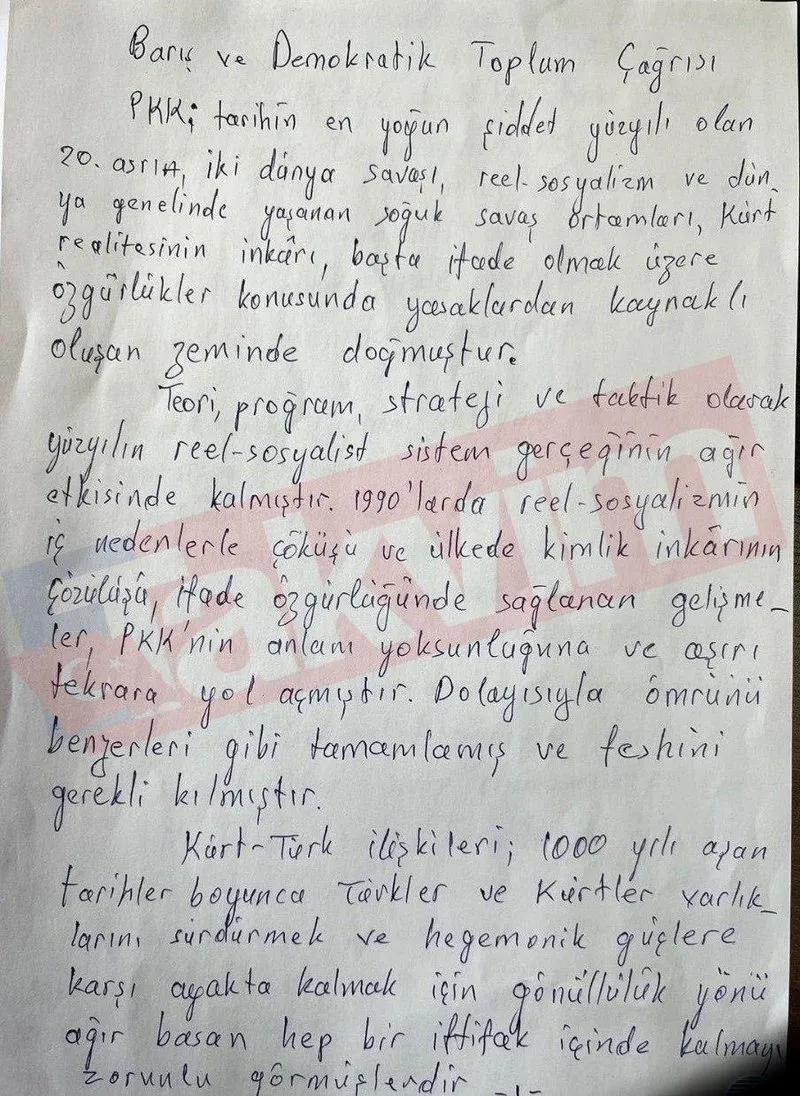 Barış ve Demokratik Toplum Çağrısı
PKK; tarihin en yoğun şiddet yüzyılı olan
20. asrın, iki dünya savaşı, reel-sosyalizm ve dün-
ya genelinde yaşanan soğuk savaş ortamları, Kürt
realitesinin inkârı, başta ifade olmak üzere
özgürlükler konusunda yasaklardan kaynaklı
oluşan zeminde doğmuştur.
Teori, proğram, strateji ve taktik olarak
yüzyılın reel-sosyalist sistem gerçeğinin ağır
etkisinde kalmıştır. 1990'larda reel-sosyalizmin
iç nedenlerle çöküşü ve ülkede kimlik inkârının
çözülüşü, ifade özgürlüğünde sağlanan gelişme-
ler, PKK'nin anlam yoksunluğuna ve aşırı
tekrara yol açmıştır. Dolayısıyla ömrünü
benzerleri gibi tamamlamış ve feshini
gerekli kılmıştır.
Kürt-Türk ilişkileri; 1000 yılı aşan
tarihler boyunca Türkler ve Kürtler varlık-
larını sürdürmek ve hegemonik güçlere
karşı ayakta kalmak için gönüllülük yönü
ağır basan hep bir ittifak içinde kalmayı
zorunlu görmüşlerdir
-1-
takvim